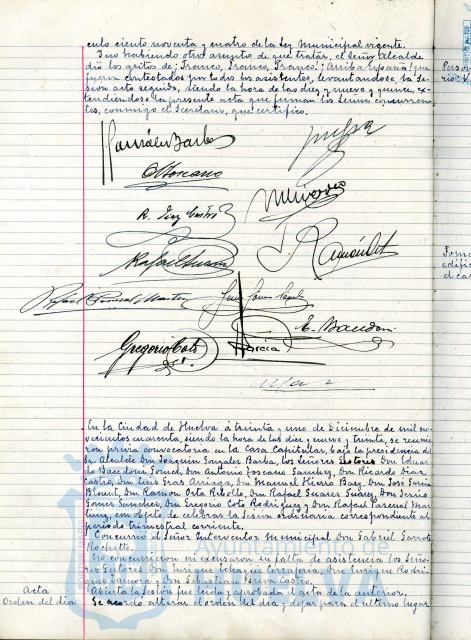 culo ciento noventa y cuatro de la Ley Municipal vigente.
Y no habiendo otro asunto de que tratar, el Señor Alcalde
dió los gritos de; Franco, Franco, Franco! ¡Arriba España! que
fueron contestados por todos los asistentes, levantandose la Se-
sión acto seguido, siendo la hora de las diez y nueve y quince, ex-
tendiendose la presente acta que firman los Señores concurren-
tes, conmigo el Secretario, que certifico.
González Barba
A. Toscano
R. Diaz Castro
Rafael Suarez
Rafael Pascual Martin
E. Baudoin
Gregorio Coto
Garcia
En la Ciudad de Huelva á treinta y uno de Diciembre de mil no-
vecientos cuarenta, siendo la hora de las diez y nueve y treinta, se reunie-
ron previa convocatoria en la Casa Capitular, bajo la presidencia del
Sr. Alcalde Don Joaquin Gonzalez Barba, los Señores Gestores Don Eduar-
do Baudoin Don Antonio Toscano Sanchez, Don Ricardo Diaz
Castro, Don Luis Gras Arriaga, Don Manuel Hierro Don José Garcia
Blount, Don Ramon Orta Rebollo, Don Rafael Suarez Suarez, Don Jesús
Gomez Sanchez, Don Gregorio Coto Rodriguez y Don Rafael Pascual Mar-
tin, con objeto de celebrar la Sesión ordinaria correspondiente al
periodo trimestral corriente.
Concurrió el Señor Interventor Municipal Don Gabriel Garrote
Rochette.
No concurrieron ni excusaron su falta de asistencia los Seño-
res Gestores Don Enrique Don Enrique Rodri-
guez Zamora y Don Sebastian Castro.
Acta Abierta la Sesión fué leida y aprobada el acta de la anterior.
Orden del día Se acordó alterar el orden del dia y dejar para el ultimo lugar